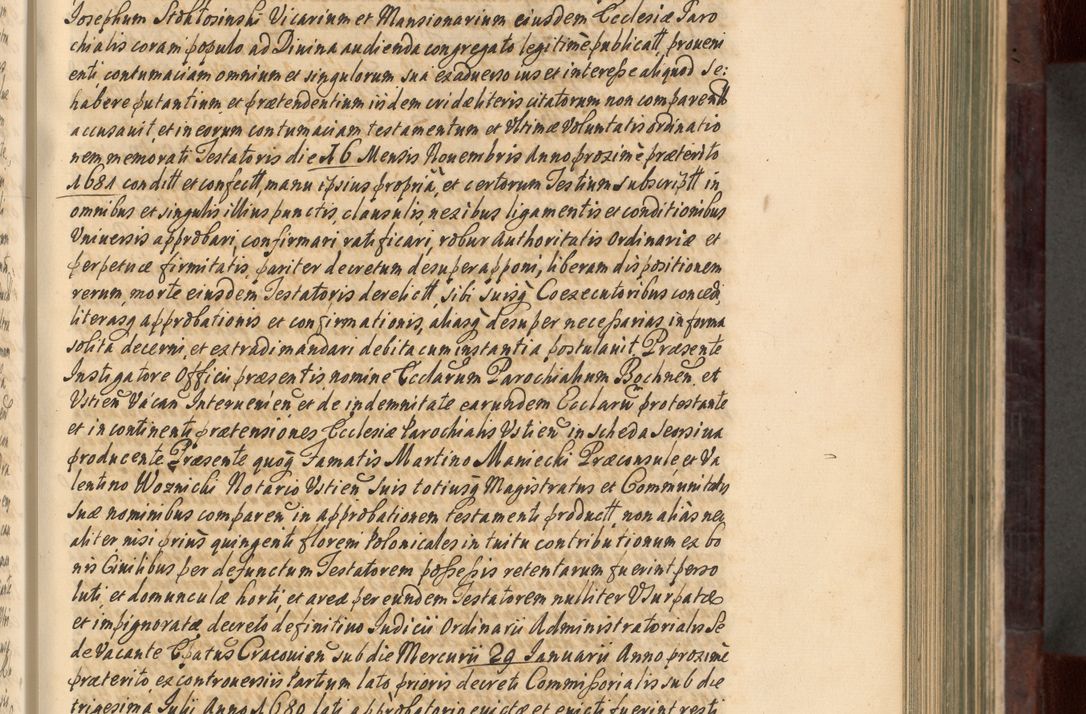 Josephum Stoktosinski Vicarium et Mansionarium eiusdem Ecclesiæ Paro
chialis coram populo ad Divina audienda congregato legitimè publicatt, proueni
enti contumaciam omnium et singulorum sua ex adverso ius et interesse aliquod se:
habere putantium et prætendentium iisdem cridæ literis citatorum non comparentt
accusauit, et in eorum contumaciam testamentum et Vltimæ Voluntatis ordinatio
nem memorati Testatoris die 16 Mensis Nouembris Anno proximè præterito
1681 conditt et confectt, manu ipsius propriâ, et certorum Testium subscriptt in
omnibus et singulis illius punctis, clausulis, nexibus ligamentis et conditionibus
Vniuersis approbari, confirmari ratificari, robur Authoritatis Ordinariæ et
perpetuæ firmitatis, pariter decretum desuper apponi, liberam dispositionem
rerum, morte eiusdem Testatoris derelictt, sibi suisq Coexecutoribus concedi,
literasq approbationis et confirmationis, aliasq desuper necessarias in forma
solita decerni, et extradi mandari debita cum instantia postulauit. Præsente
Instigatore Officii præsentis nomine Ecclarum Parochialium Bochnen, et
Vstien Vacan Interuenien et de indemnitate earundem Ecclarū protestante
et in continenti prætensiones Ecclesiæ Parochialis Vstien in scheda seorsiua
producente Præsente quoq Famatis Martino Maniecki Præconsule et Va
lentino Woznicki Notario Vstien suis totiusq Magistratus et Communitatis
suæ nominibus comparen, in approbationem testamenti productt, non aliàs nec
aliter nisi priùs quingenti floreni Polonicales intuitu contributionum ex bo
nis Ciuilibus per defunctum Testatorem possessis retentarum fuerint perso
luti, et domunculæ horti, et areæ per eundem Testatorem nulliter Vsurpatæ
et impignoratæ decreto definitiuo Iudicii Ordinarii Administratorialis Se
de Vacante Epatus Cracouien sub die Mercurii 29 Ianuarii Anno proximè
præterito ex controuersiis Partium lato prioris decreti Commissorialis sub die
trigesima Iulii Anno 1680 lati approbatorio euictæ et euicti fuerint resti